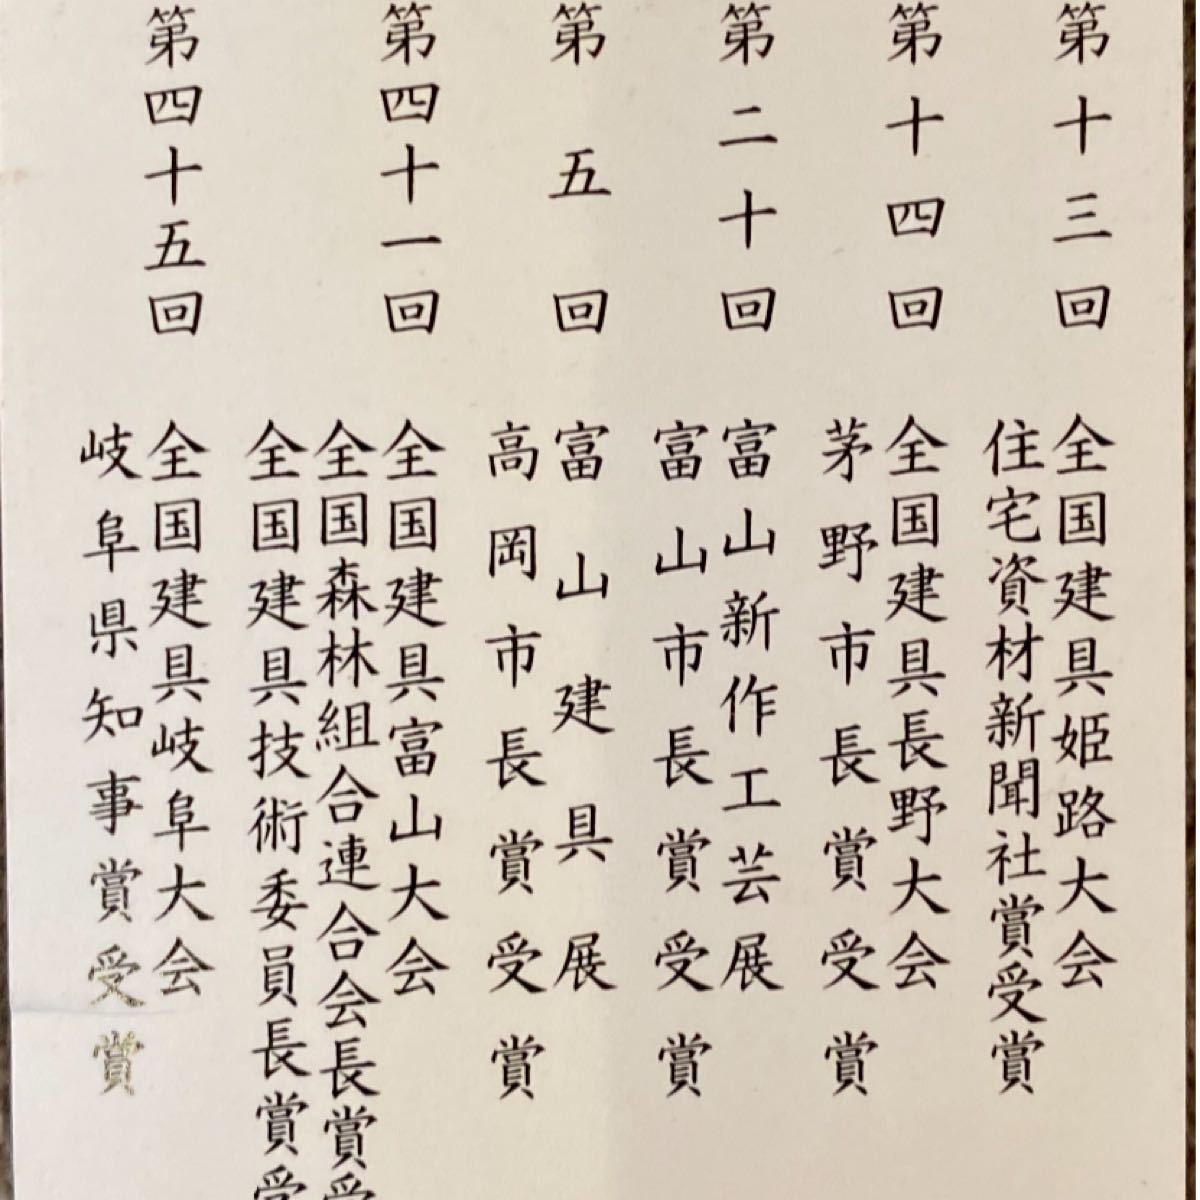 第十三回 全国建具姫路大会
住宅資材新聞社賞受賞
第十四回 全国建具長野大会
茅野市長賞受賞
第二十回 富山新作工芸展
富山市長賞受賞
第五回 富山建具展
高岡市長賞受賞
第四十一回 全国建具富山大会
全国森林組合連合会長賞受
全国建具技術委員長賞受
第四十五回 全国建具岐阜大会
岐阜県知事賞受賞